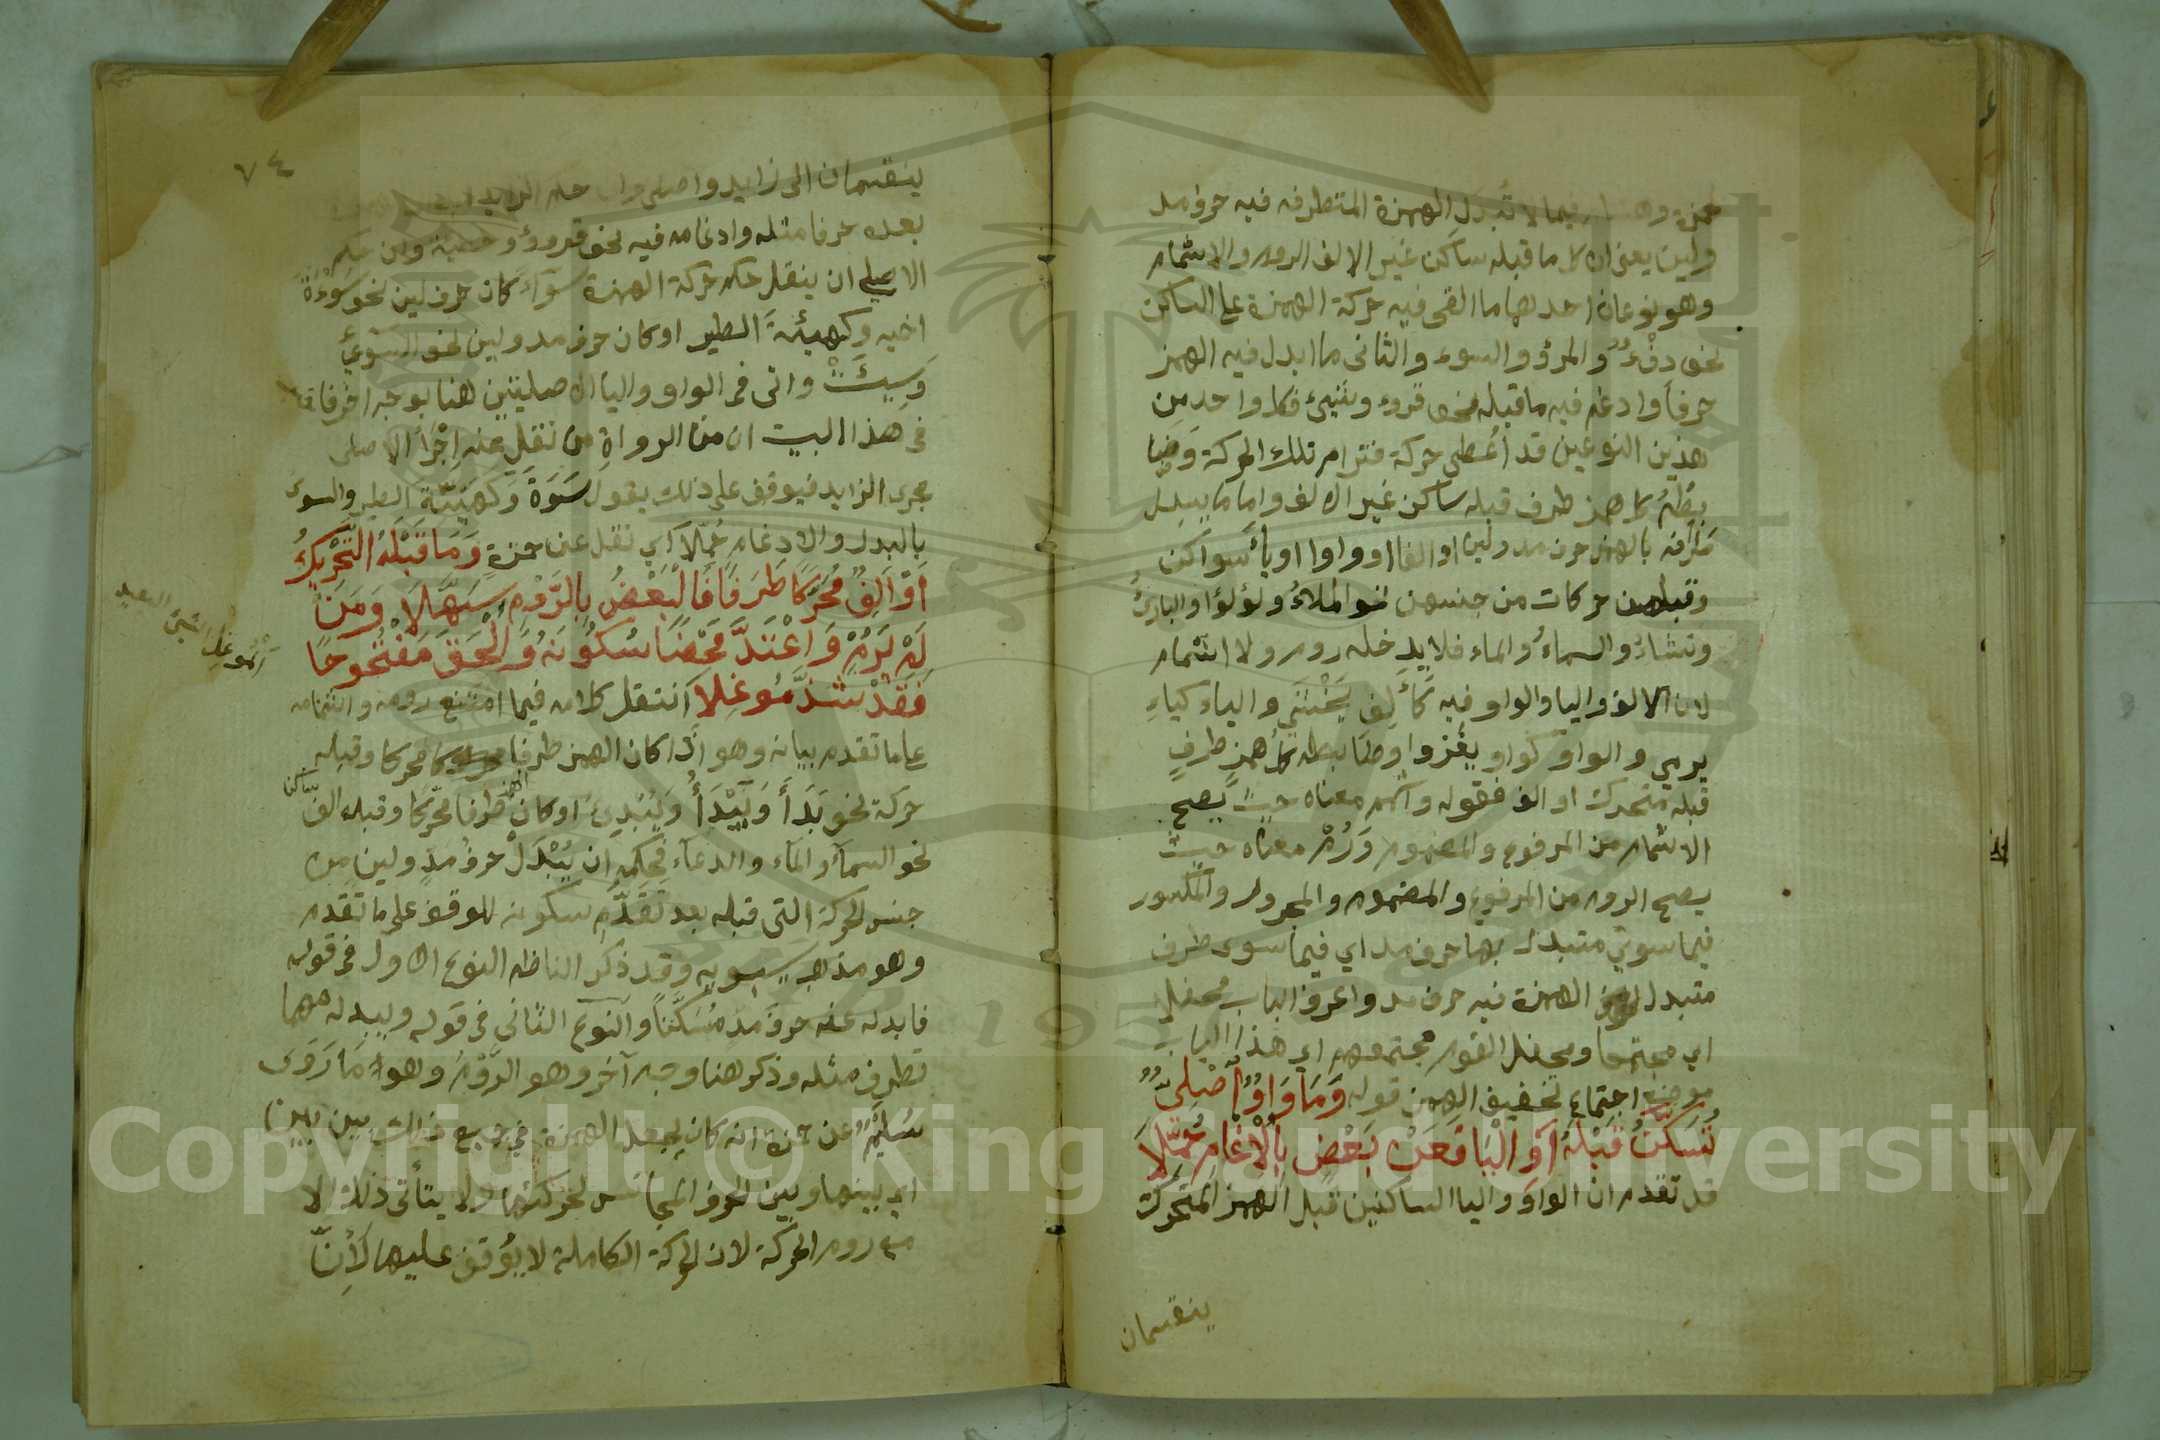 حمزة وهشام فيما لا تبدل الهمزة المتطرفه فيه حرف مد
ولين يعني ان كل ما قبله ساكن غير الالف الروم والاشمام
وهو نوعان احدهما ما القي فيه حركة الهمزة على الساكن
نحو دفْءٌ والمرؤ والسوء والثاني ما ابدل فيه الهمز
حرفاً وادغم فيه ما قبله نحو قروء وشيئ فكل واحد من
هذين النوعين قد اُعطي حركة فترام تلك الحركة وضا
بطُهُ كل همز طرف قبله ساكن غير الالف واما ما يبدل
طرفه بالهمز حرف مد ولين او الفا او واوا او ياء سواكن
وقبلهن حركات من جنسهن نحو الملاءُ ولؤلؤا والبارئُ
وتشاءُ والسماءُ والماء فلا يدخله روم ولا اشمام
لان الالف واليا والواو فيه كَأَلِفِ يَخْشَى والياء كياءِ
يرمي والواو كواو يغزوا وضابطه كل همز طرفٍ
قبله متحرك او الف فقوله واشمم معناه حيث يصح
الاشمام من المرفوع والمضموم وَرُمْ معناه حيث
يصح الروم من المرفوع والمضموم والمجرور والمكسور
فيما سوي متبدل بها حرف مد اي فيما سوى طرف
متبدل الهمزة فيه حرف مد واعرف الباب محفلا
اي مجتمعا ومحفل القوم مجتمعهم اي هذا الباب
موضع اجتماع تخفيف الهمز قوله وَمَا وَاوٌ أصْلِيٌّ
تُسَكِّنُ قَبْلَهُ اَوِ الْيَا فَعَنْ بَعْضٍ بِالْاِدْغَامِ حُمِّلَا
قد تقدم ان الواوَ واليا الساكنين قبل الهمز المتحركة
ينقسمان
٧٤
ينقسمان الى زايد واصلي وان حكم الزايد
بعده حرفا مثله وادغامه فيه نحو قروءٍ وخطيئة وان حكم
الاصلي ان ينقل حكم حركة الهمزة سواء كان حرف لين نحو سَوْءَةَ
اخيه وكهيئةَ الطير او كان حرف مد ولين نحو السُّوءُ
وَسِيئَتْ واتى في الواو واليا الاصليتين هنا بوجه اخر فافاد
في هذا البيت ان من الرواةِ من نقل عنه اِجْرَاَ الاصلي
مجرى الزايد فيوقف على ذلك بقول سَوَّة وكَهَيَّةِ الطير والسوّ
بالبدل والادغام حُمّلَا اي نقل عن حمزةٍ وَمَا قَبْلَهُ التَّحْرِيكُ
اَوْ اَلِفٌ مُحَرَّكًا طَرَفًا فَالْبَعْضُ بِالرَّوْمِ سَهَّلَا وَمَنْ
لَمْ يَرُمْ وَاعْتَدَّ مَحْضًا سُكُونَهُ وَاَلْحَقَ مَفْتُوحًا
فَقَدْ شَذَّ مُوغِلَا انتقل كلامه فيما امتنع رومه واشمامه
على ما تقدم بيانه وهو اذا كان الهمز طرفا محركا وقبله
حركة نحو بَدَأَ وَيَبْدَأُ وَيُبْدِئُ او كان طرفا محركا وقبله الف
الهمز
ساكن
نحو السماء والمآء والدعآء فحكمه ان يُبْدَلْ حرفَ مدٍّ ولين من
جنس الحركة التي قبله بعد تقدُّمِ سكونه للوقف على ما تقدم
وهو مذهب سيبويه وقد ذكر الناظم النوع الاول في قوله
فابدله عنه حرفَ مَدٍّ مُسَكَّناً والنوع الثاني في قوله ويبدله مهما
تطرف مثله وذكر هنا وجه آخر وهو الرَّوْمُ وهو ما رَوَى
سُلَيْمٌ عن حمزة انه كان يجعل الهمزة في جميع ذلك بين بين
اي بينها وبين الحرف المجانس لحركتها ولا يتأتى ذلك الا
مع روم الحركة لان الحركة الكاملة لا يُوقف عليها لأِنَّ
الموغل الشي البعيد